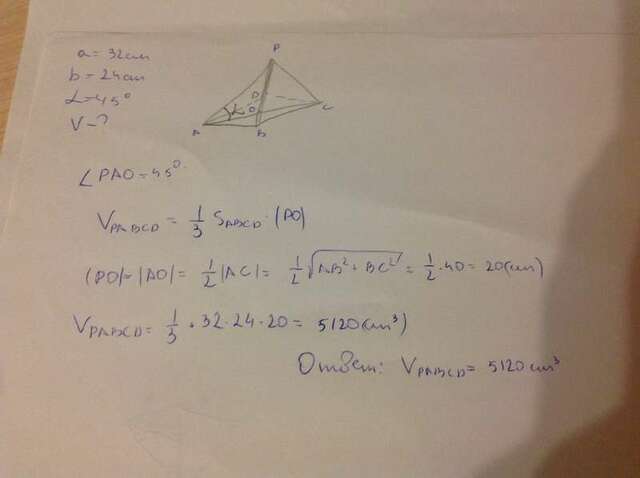 a = 32 cm
b = 24 cm
α = 45°
V - ?
P
D
O
α
A
B
C
∠PAO = 45°
V_PABCD = 1/3 S_ABCD · |PO|
|PO| = |AO| = 1/2 |AC| = 1/2 √(AB² + BC²) = 1/2 · 40 = 20 (cm)
V_PABCD = 1/3 · 32 · 24 · 20 = 5120 (cm³)
Ответ: V_PABCD = 5120 cm³